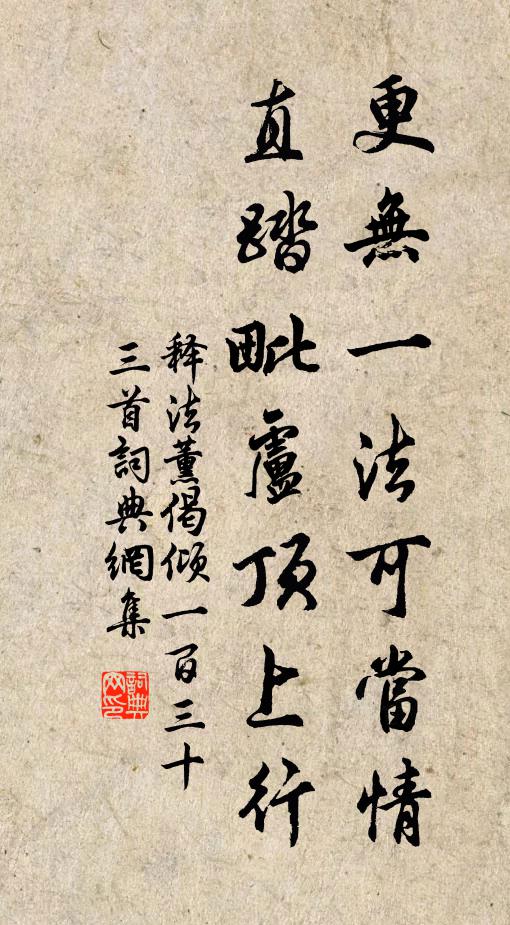 更無一法可當情
直踏毗盧頂上行
释法薰偈倾一百三十
三首詞典網集
詞典
网印